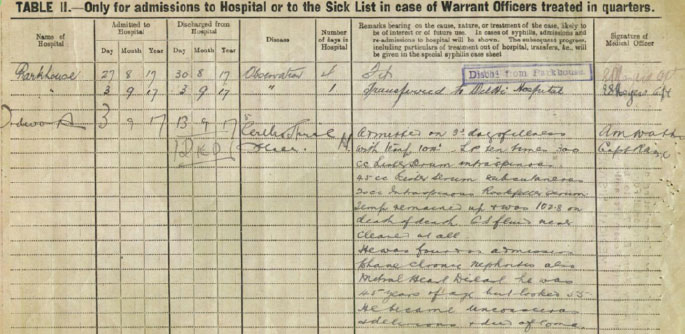 TABLE II.—Only for admissions to Hospital or to the Sick List in case of Warrant Officers treated in quarters.
Name of Hospital
Admitted to Hospital
Day Month Year
Discharged from Hospital
Day Month Year
Disease
Number of days in Hospital
Remarks bearing on the cause, nature, or treatment of the case, likely to
be of interest or of future use. In cases of syphilis, admissions and
re-admissions to hospital will be shown. The subsequent progress,
including particulars of treatment out of hospital, transfers, &c., will
be given in the special syphilis case sheet
Signature of Medical Officer
Parkhouse 27 8 17 30 8 17 Observation 4 Fit
Disch: from Parkhouse
" 3 9 17 3 9 17 " 1 Transferred to Hospital
3 9 17 13 9 17 Cerebro Spinal Admitted on 3rd day of illness
Fever with Temp L.P. ten times 300
cc Lister Serum intraspinous
45 cc Lister Serum subcutaneous
30cc Intraspinous Serum
Temp remained up & was 102.8 on
death of death never
cleared at all
He was found on admission
chronic nephritis also
Mitral Heart Disease he was
45 years of age but looked 55
He became unconscious
& delirious & died of coma